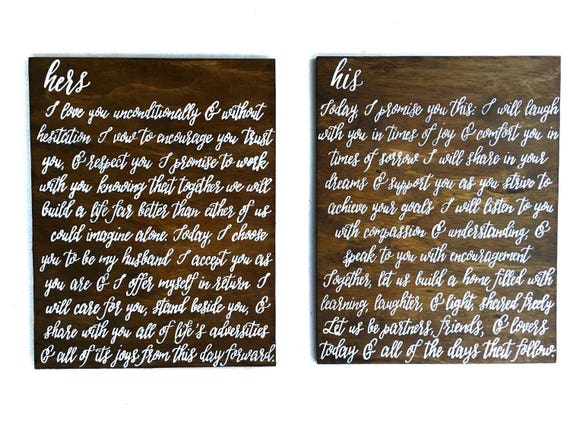 hers
I love you unconditionally & without
hesitation I vow to encourage you trust
you, & respect you I promise to work
with you knowing that together we will
build a life far better than either of us
could imagine alone. Today, I choose
you to be my husband I accept you as
you are & I offer myself in return I
will care for you, stand beside you, &
share with you all of life's adversities
& all of its joys from this day forward.
his
Today, I promise you this: I will laugh
with you in times of joy & comfort you in
times of sorrow I will share in your
dreams & support you as you strive to
achieve your goals I will listen to you
with compassion & understanding, &
speak to you with encouragement
Together, let us build a home filled with
learning, laughter, & light, shared freely
Let us be partners, friends, & lovers
today & all of the days that follow.